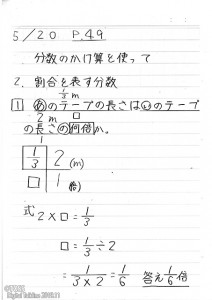 5/20 P.49
分数のかけ算を使って
2. 割合を表す分数
1/3 m
1 あのテープの長さはいのテープ
2m □
の長さの何倍か。
1/3 2 (m)
□ 1 (倍)
式 2×□=1/3
□=1/3÷2
=1/(3×2)=1/6 答え1/6倍